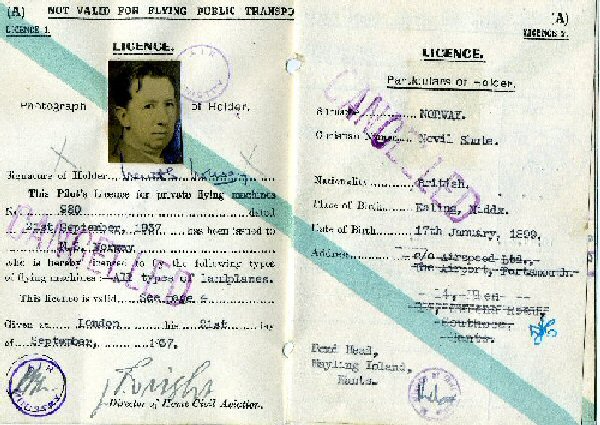 (A) NOT VALID FOR FLYING PUBLIC TRANSPO
LICENCE 1.
LICENCE.
Photograph of Holder.
Signature of Holder
This Pilot's Licence for private flying machines
No. 980 dated
21st September, 1937 has been issued to
N.S. Norway
who is hereby licensed to fly the following types
of flying machines:- All types of landplanes.
This licence is valid See page 4
Given at London this 21st day
of September, 1937.
Director of Home Civil Aviation.
CANCELLED
(A)
LICENCE 2.
LICENCE.
Particulars of Holder.
Surname NORWAY.
Christian Names Nevil Shute.
Nationality British.
Place of Birth Ealing, Middx.
Date of Birth 17th January, 1899.
Address c/o Airspeed Ltd.,
The Airport, Portsmouth.
14, Hen
Southsea,
Hants.
Pond Head,
Hayling Island,
Hants.
CANCELLED